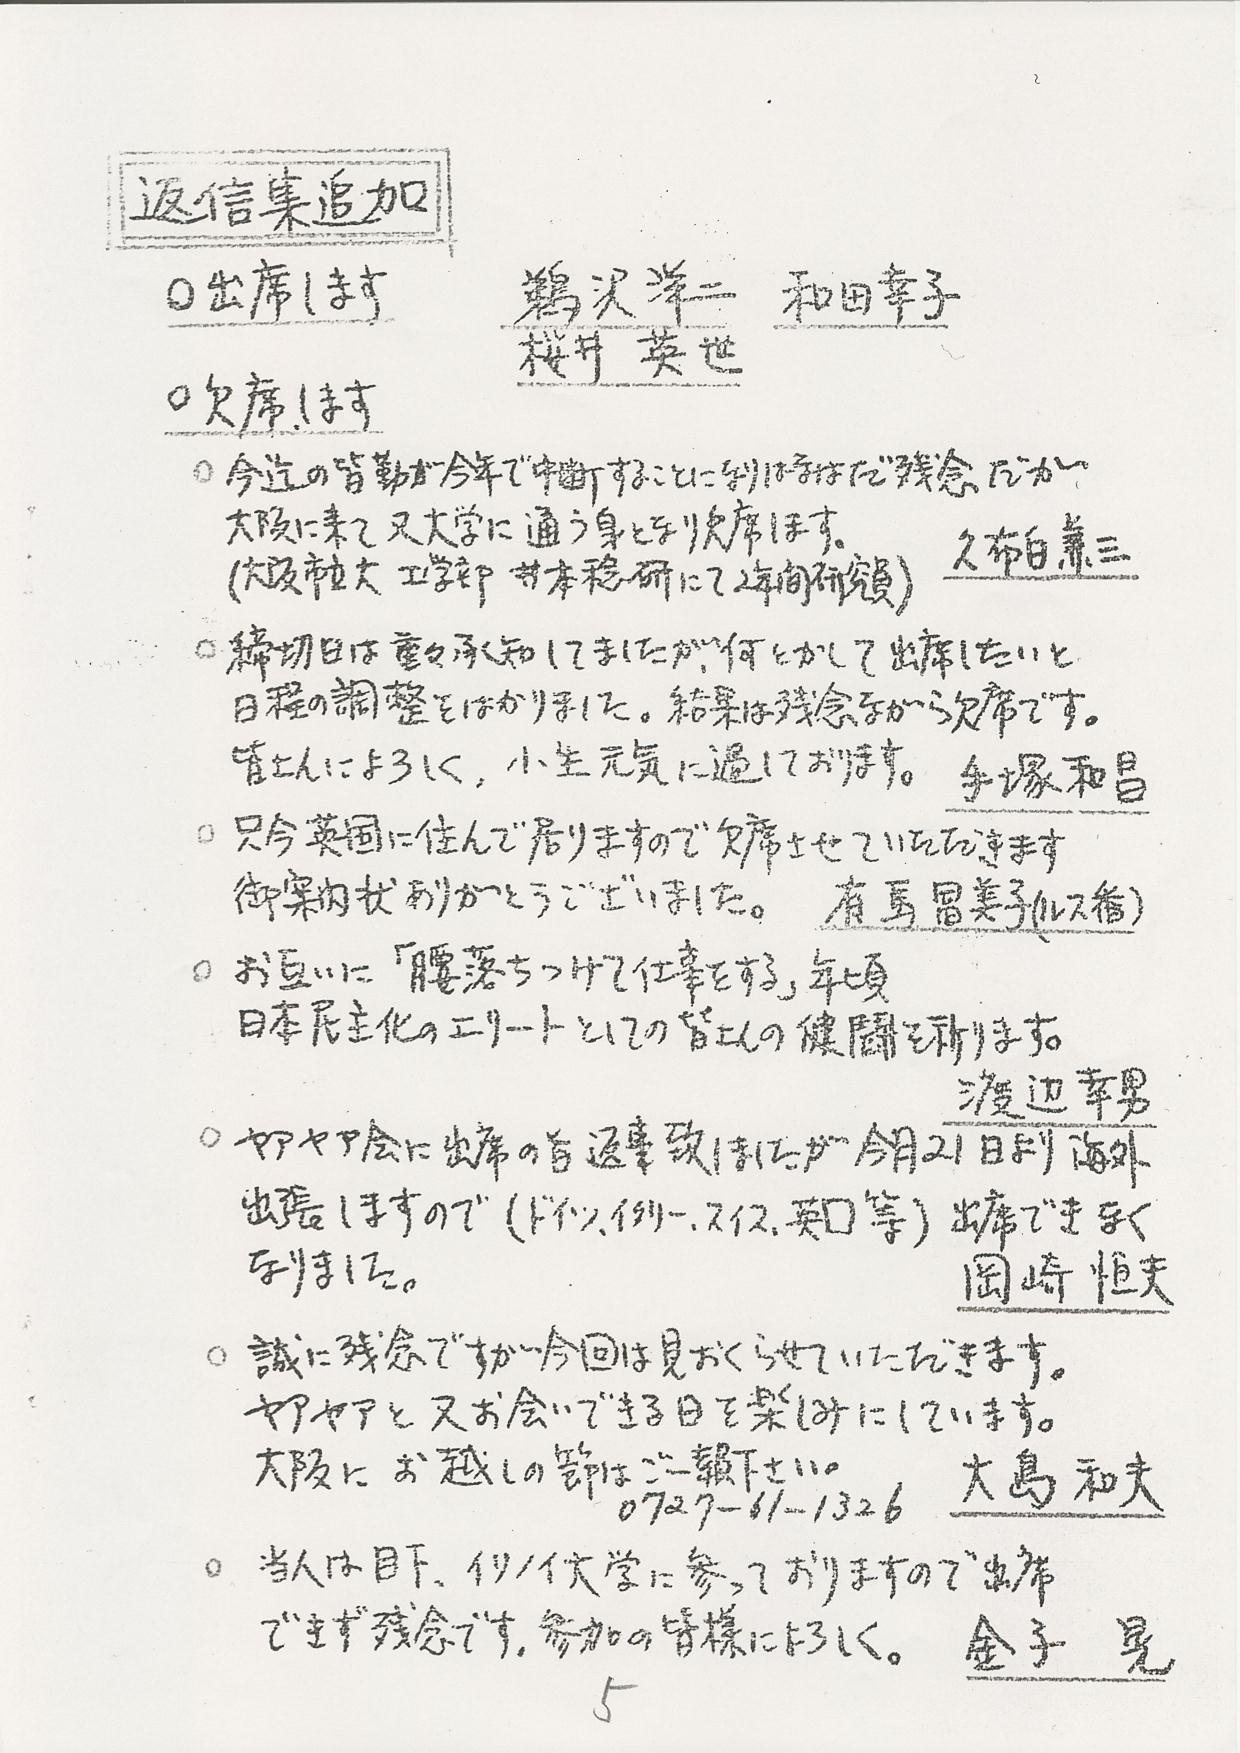 返信集追加
○出席します 鵜沢洋二 和田幸子
桜井英世
○欠席します
○今迄の皆勤が今年で中断することになりはなはだ残念だが
大阪に来て又大学に通う身となり欠席します。
(大阪市立大 工学部 井本稔研にて2年間研究員) 久布白兼三
○締切日は重々承知してましたが、何とかして出席したいと
日程の調整をはかりました。結果は残念ながら欠席です。
皆さんによろしく, 小生元気に過しております。 手塚和昌
○只今英国に住んで居りますので欠席させていただきます
御案内状ありがとうございました。 有馬冒美子(ルス番)
○お互いに「腰落ちつけて仕事をする」年頃
日本民主化のエリートとしての皆さんの健闘を祈ります。
渡辺幸男
○ヤアヤア会に出席の旨返事致しましたが今月21日より海外
出張しますので(ドイツ、イタリー、スイス、英口等)出席できなく
なりました。 岡崎恒夫
○誠に残念ですが今回は見おくらせていただきます。
ヤアヤアと又お会いできる日を楽しみにしています。
大阪にお越しの節はご一報下さい。 大島和夫
0727-61-1326
○当人は目下、イリノイ大学に参っておりますので出席
できず残念です。参加の皆様によろしく。 金子 晃
5